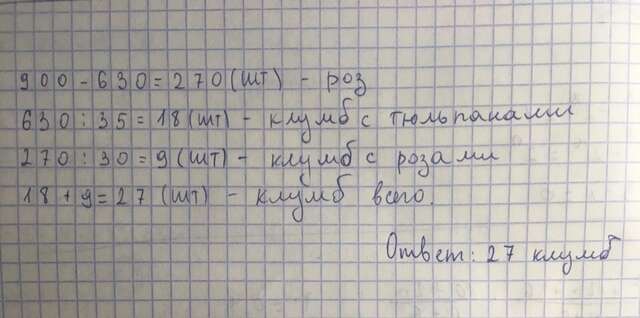 900 - 630 = 270 (шт) - роз
630 : 35 = 18 (шт) - клумб с тюльпанами
270 : 30 = 9 (шт) - клумб с розами
18 + 9 = 27 (шт) - клумб всего.
Ответ: 27 клумб